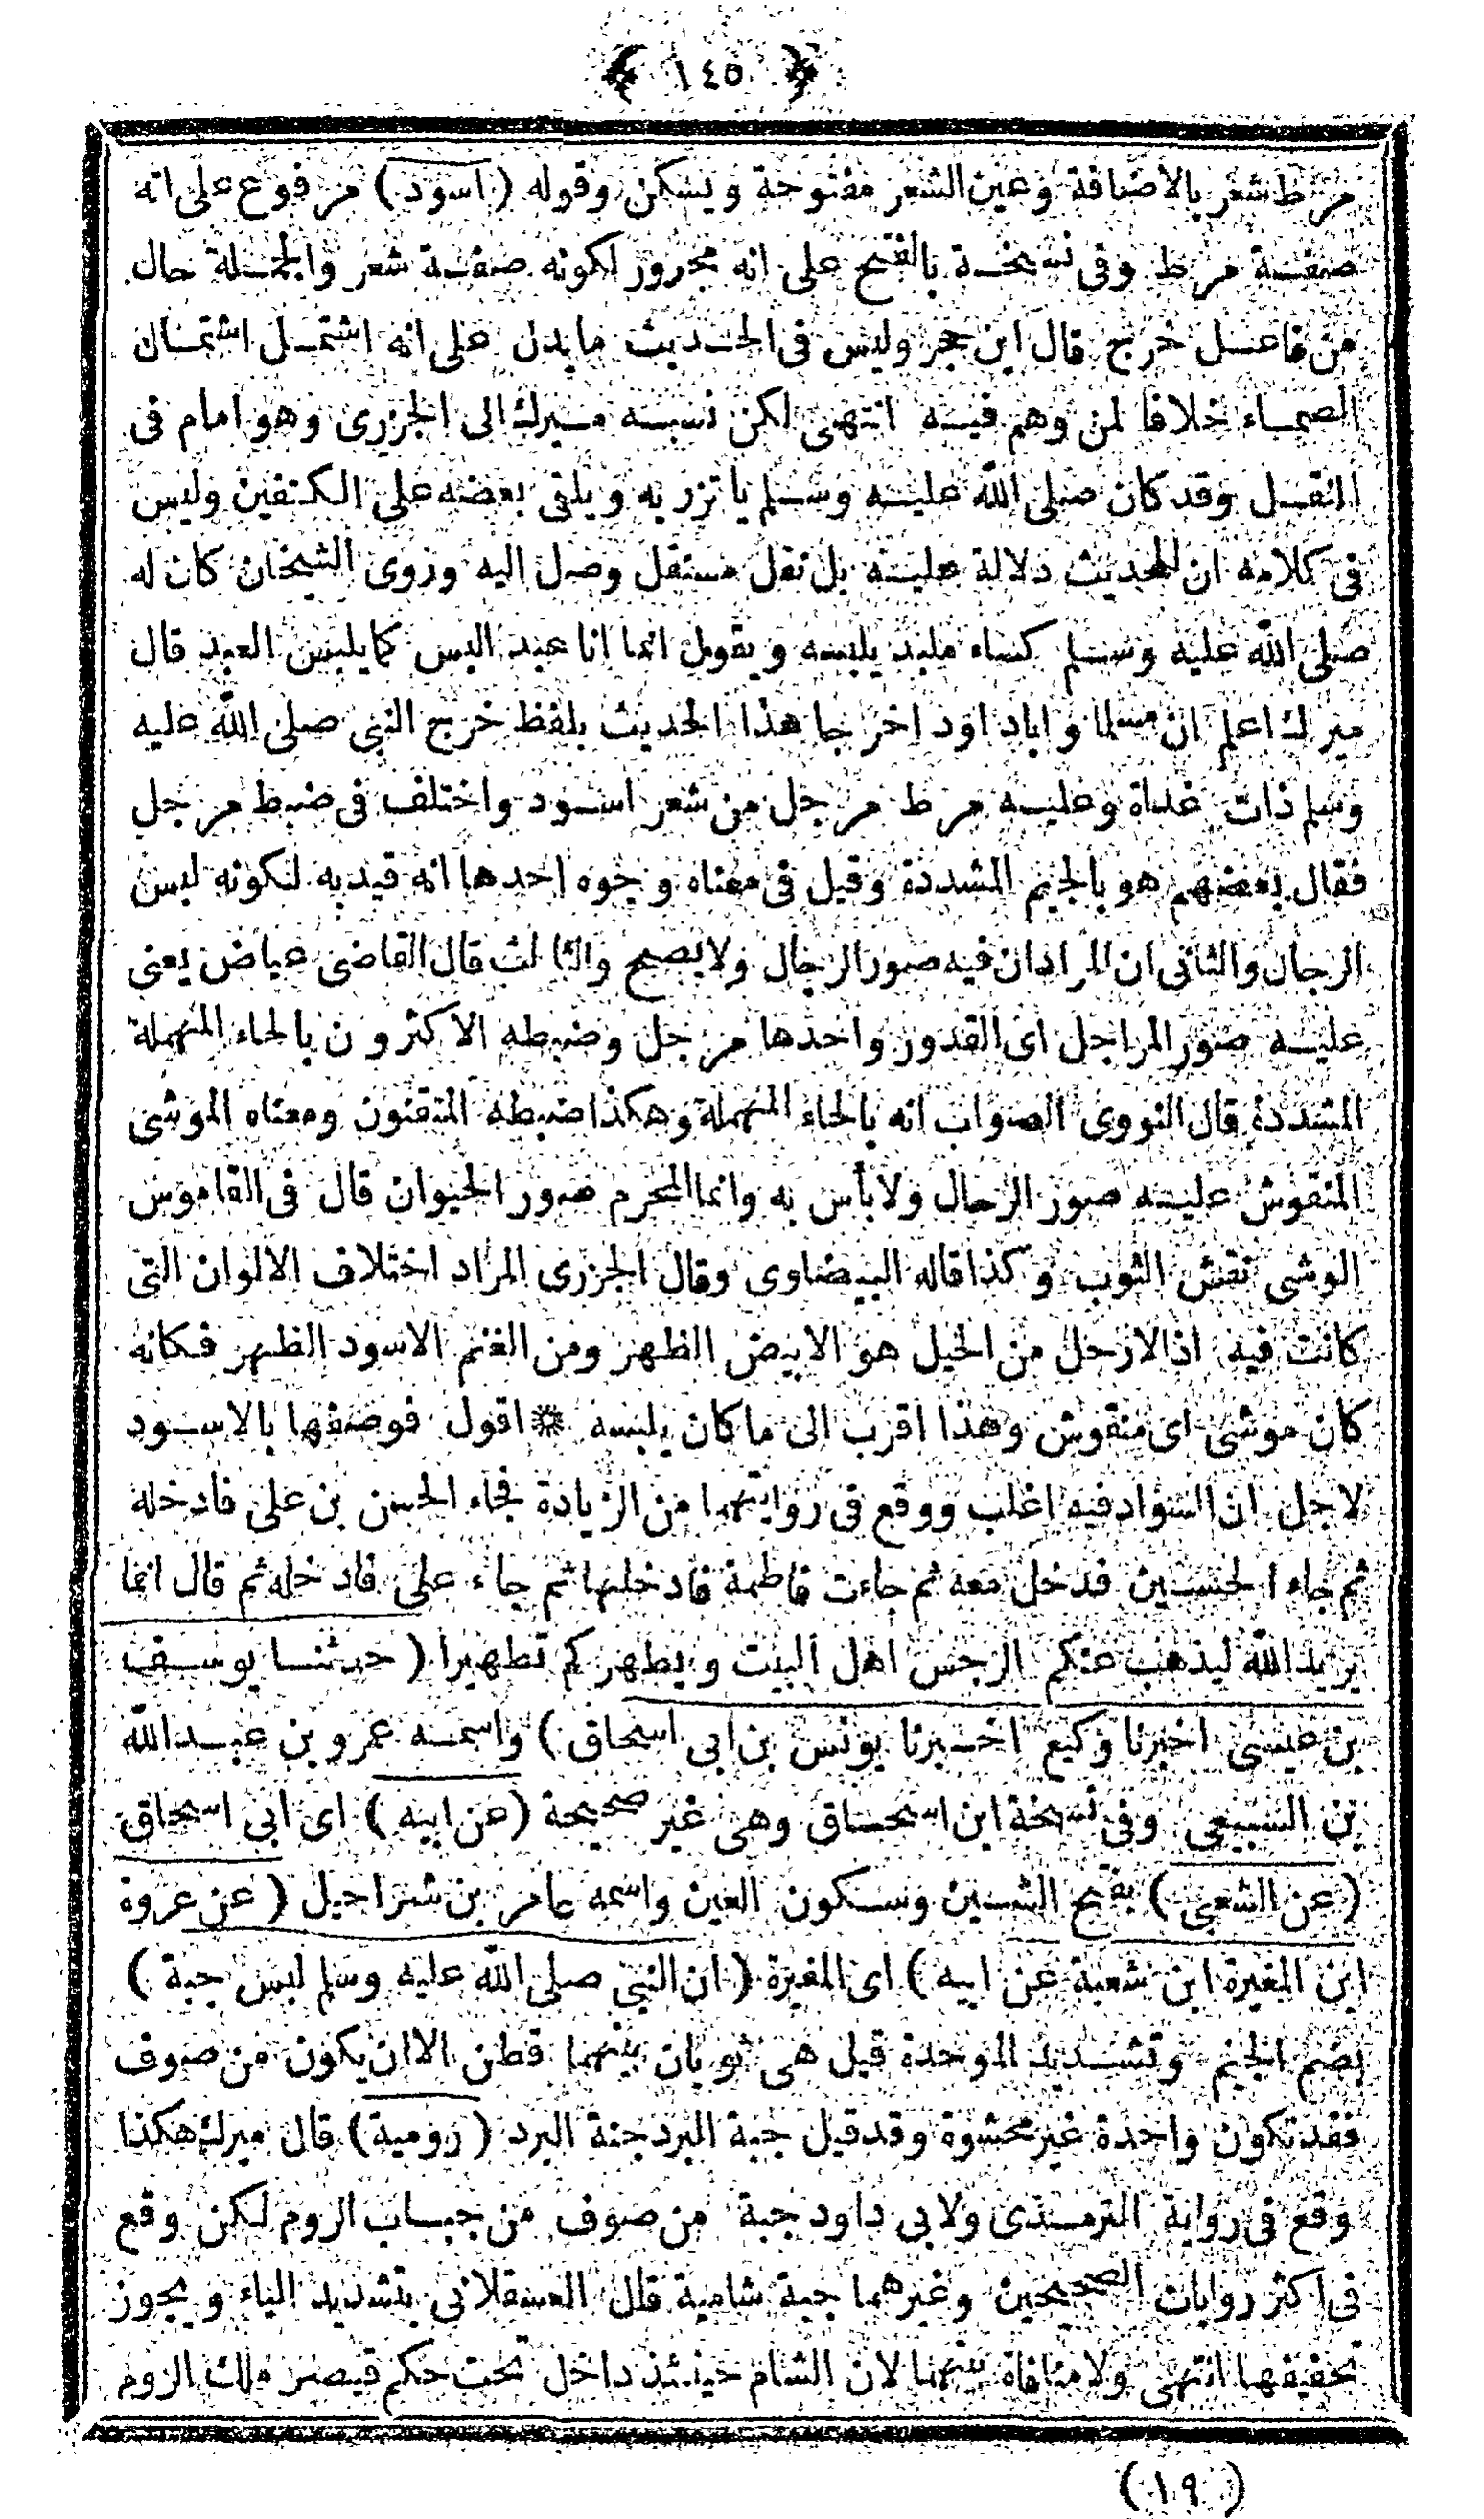 ﴿ ١٤٥ ﴾
مرط شعر بالاضافة وعين الشعر مفتوحة ويسكن وقوله (اسود) مرفوع على انه
صفة مرط وفى نسخة بالفتح على انه مجرور لكونه صفة شعر والجملة حال
من فاعل خرج قال ابن حجر وليس فى الحديث مايدل على انه اشتمل اشتمال
الصماء خلافا لمن وهم فيه انتهى لكن نسبه ميرك الى الجزرى وهو امام فى
النقل وقد كان صلى الله عليه وسلم ياتزر به ويلقى بعضه على الكتفين وليس
فى كلامه ان الحديث دلالة عليه بل نقل مستقل وصل اليه وروى الشيخان كان له
صلى الله عليه وسلم كساء ملبد يلبسه ويقول انما انا عبد البس كما يلبس العبد قال
ميرك اعلم ان مسلما واباداود اخرجا هذا الحديث بلفظ خرج النبى صلى الله عليه
وسلم ذات غداة وعليه مرط مرجل من شعر اسود واختلف فى ضبط مرجل
فقال بعضهم هو بالجيم المشددة وقيل فى معناه وجوه احدها انه قيد به لكونه لبس
الرجال والثانى ان المراد ان فيه صور الرجال ولا يصح والثالث قال القاضى عياض يعنى
عليه صور المراجل اى القدور واحدها مرجل وضبطه الاكثرون بالحاء المهملة
المشددة قال النووى الصواب انه بالحاء المهملة وهكذا ضبطه المتقنون ومعناه الموشى
المنقوش عليه صور الرحال ولا بأس به وانما المحرم صور الحيوان قال فى القاموس
الوشى نقش الثوب وكذا قاله البيضاوى وقال الجزرى المراد اختلاف الالوان التى
كانت فيه اذ الارحل من الخيل هو الابيض الظهر ومن الغنم الاسود الظهر فكانه
كان موشى اى منقوش وهذا اقرب الى ما كان يلبسه * اقول فوصفها بالاسود
لاجل ان السواد فيه اغلب ووقع فى روايتهما من الزيادة فجاء الحسن بن على فادخله
ثم جاء الحسين فدخل معه ثم جاءت فاطمة فادخلها ثم جاء على فادخله ثم قال انما
يريد الله ليذهب عنكم الرجس اهل البيت ويطهركم تطهيرا (حدثنا يوسف
بن عيسى اخبرنا وكيع اخبرنا يونس بن ابى اسحاق) واسمه عمرو بن عبد الله
بن السبيعى وفى نسخة ابن اسحاق وهى غير صحيحة (عن ابيه) اى ابى اسحاق
(عن الشعبى) بفتح الشين وسكون العين واسمه عامر بن شراحيل (عن عروة
ابن المغيرة ابن شعبة عن ابيه) اى المغيرة (ان النبى صلى الله عليه وسلم لبس جبة)
بضم الجيم وتشديد الموحدة قيل هى ثوبان بينهما قطن الا ان يكون من صوف
فقد تكون واحدة غير محشوة وقد قيل جبة البرد جنة البرد (رومية) قال ميرك هكذا
وقع فى رواية الترمذى ولابى داود جبة من صوف من جباب الروم لكن وقع
فى اكثر روايات الصحيحين وغيرهما جبة شامية قال العسقلانى بتشديد الياء ويجوز
تخفيفها انتهى ولا منافاة بينهما لان الشام حينئذ داخل تحت حكم قيصر ملك الروم
(١٩)